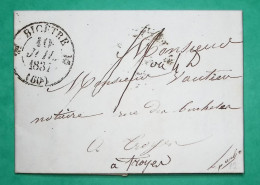 BICÊTRE
10
JUIL.
1837
(60)
Monsieur
Monsieur Vautrier
notaire rue du
à Troyes
à Troyes